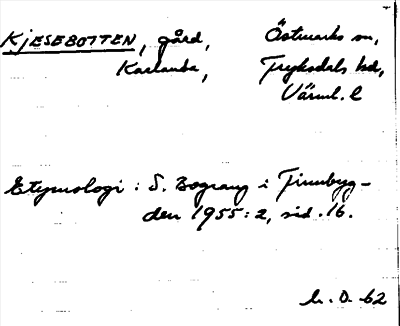 KJESEBOTTEN, gård, Östmarks sn,
Karlanda, Fryksdals hd,
Värml. l
Etymologi : S. Bograng i Finnbyg-
den 1955:2, sid. 16.
h. D. -62